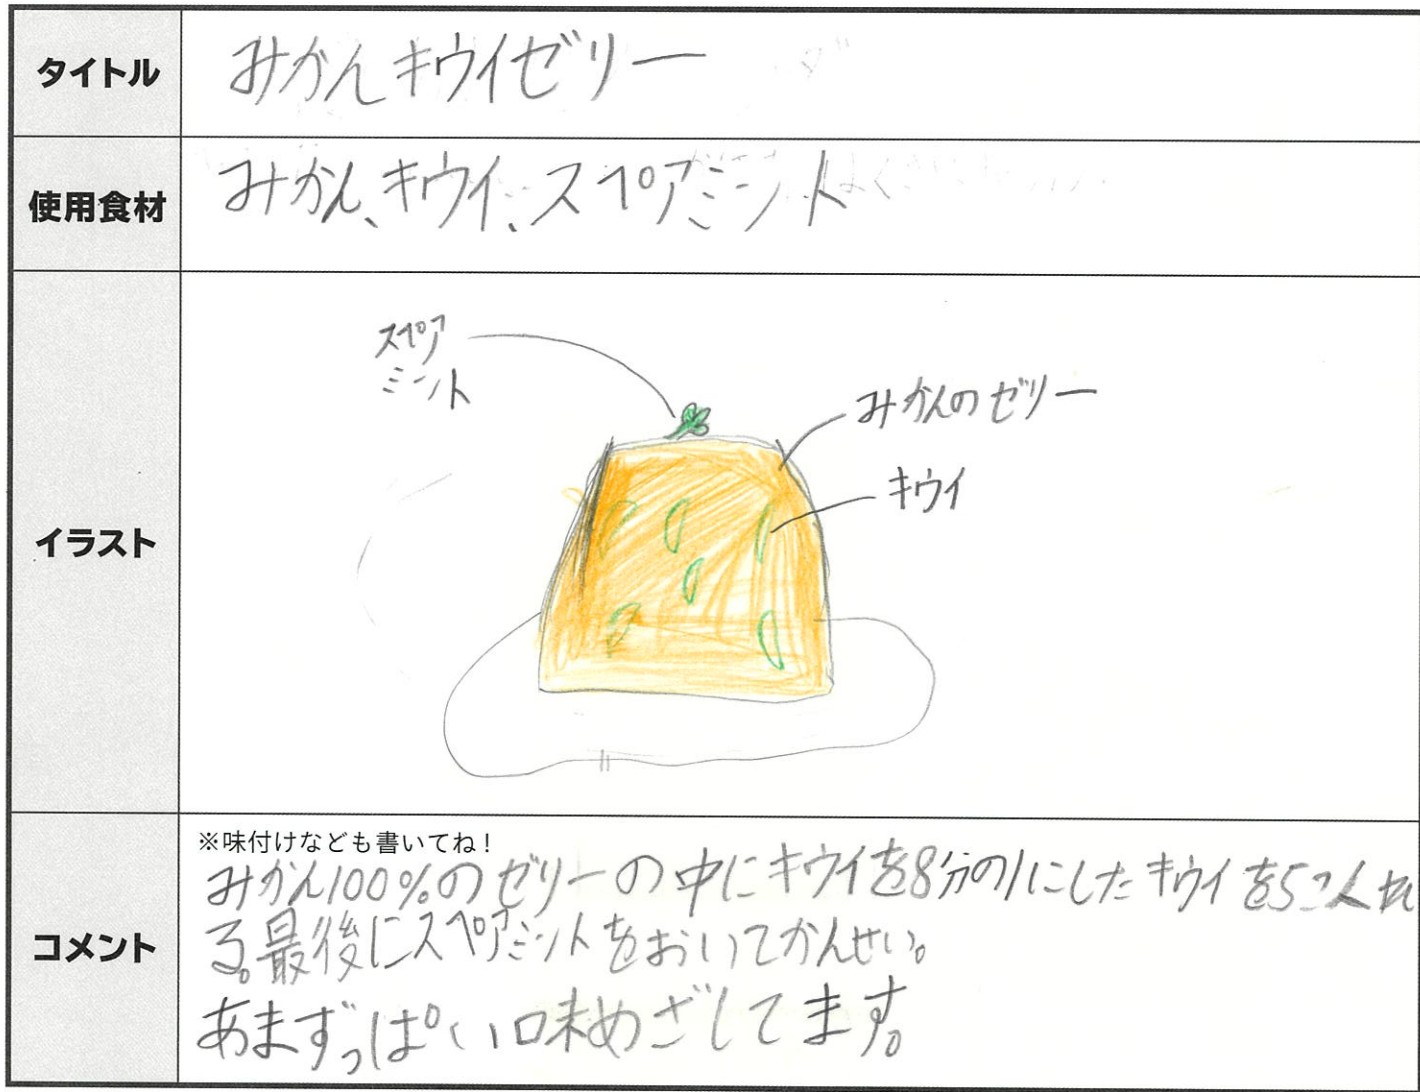 タイトル
みかんキウイゼリー
使用食材
みかん、キウイ、スペアミント
イラスト
スペア
ミント
みかんのゼリー
キウイ
コメント
※味付けなども書いてね!
みかん100%のゼリーの中にキウイを8分の1にしたキウイを5こ入れ
る。最後にスペアミントをおいてかんせい。
あまずっぱい味めざしてます。